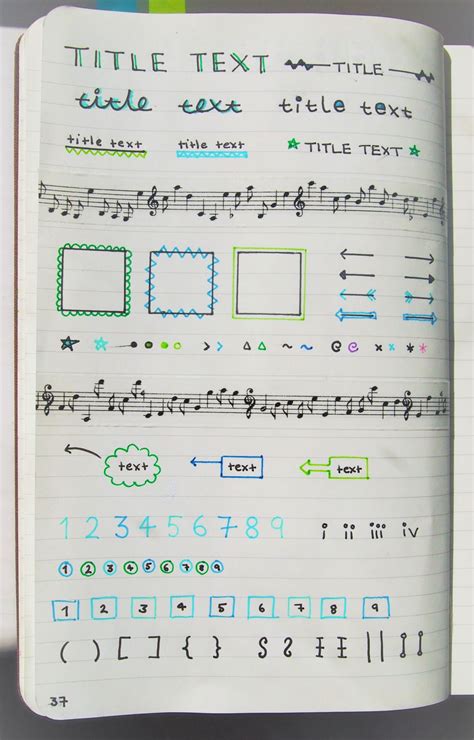 TITLE TEXT TITLE
title text title text
title text title text TITLE TEXT
text text text
1 2 3 4 5 6 7 8 9 i ii iii iv
1 2 3 4 5 6 7 8 9
1 2 3 4 5 6 7 8 9
( ) [ ] { }
37